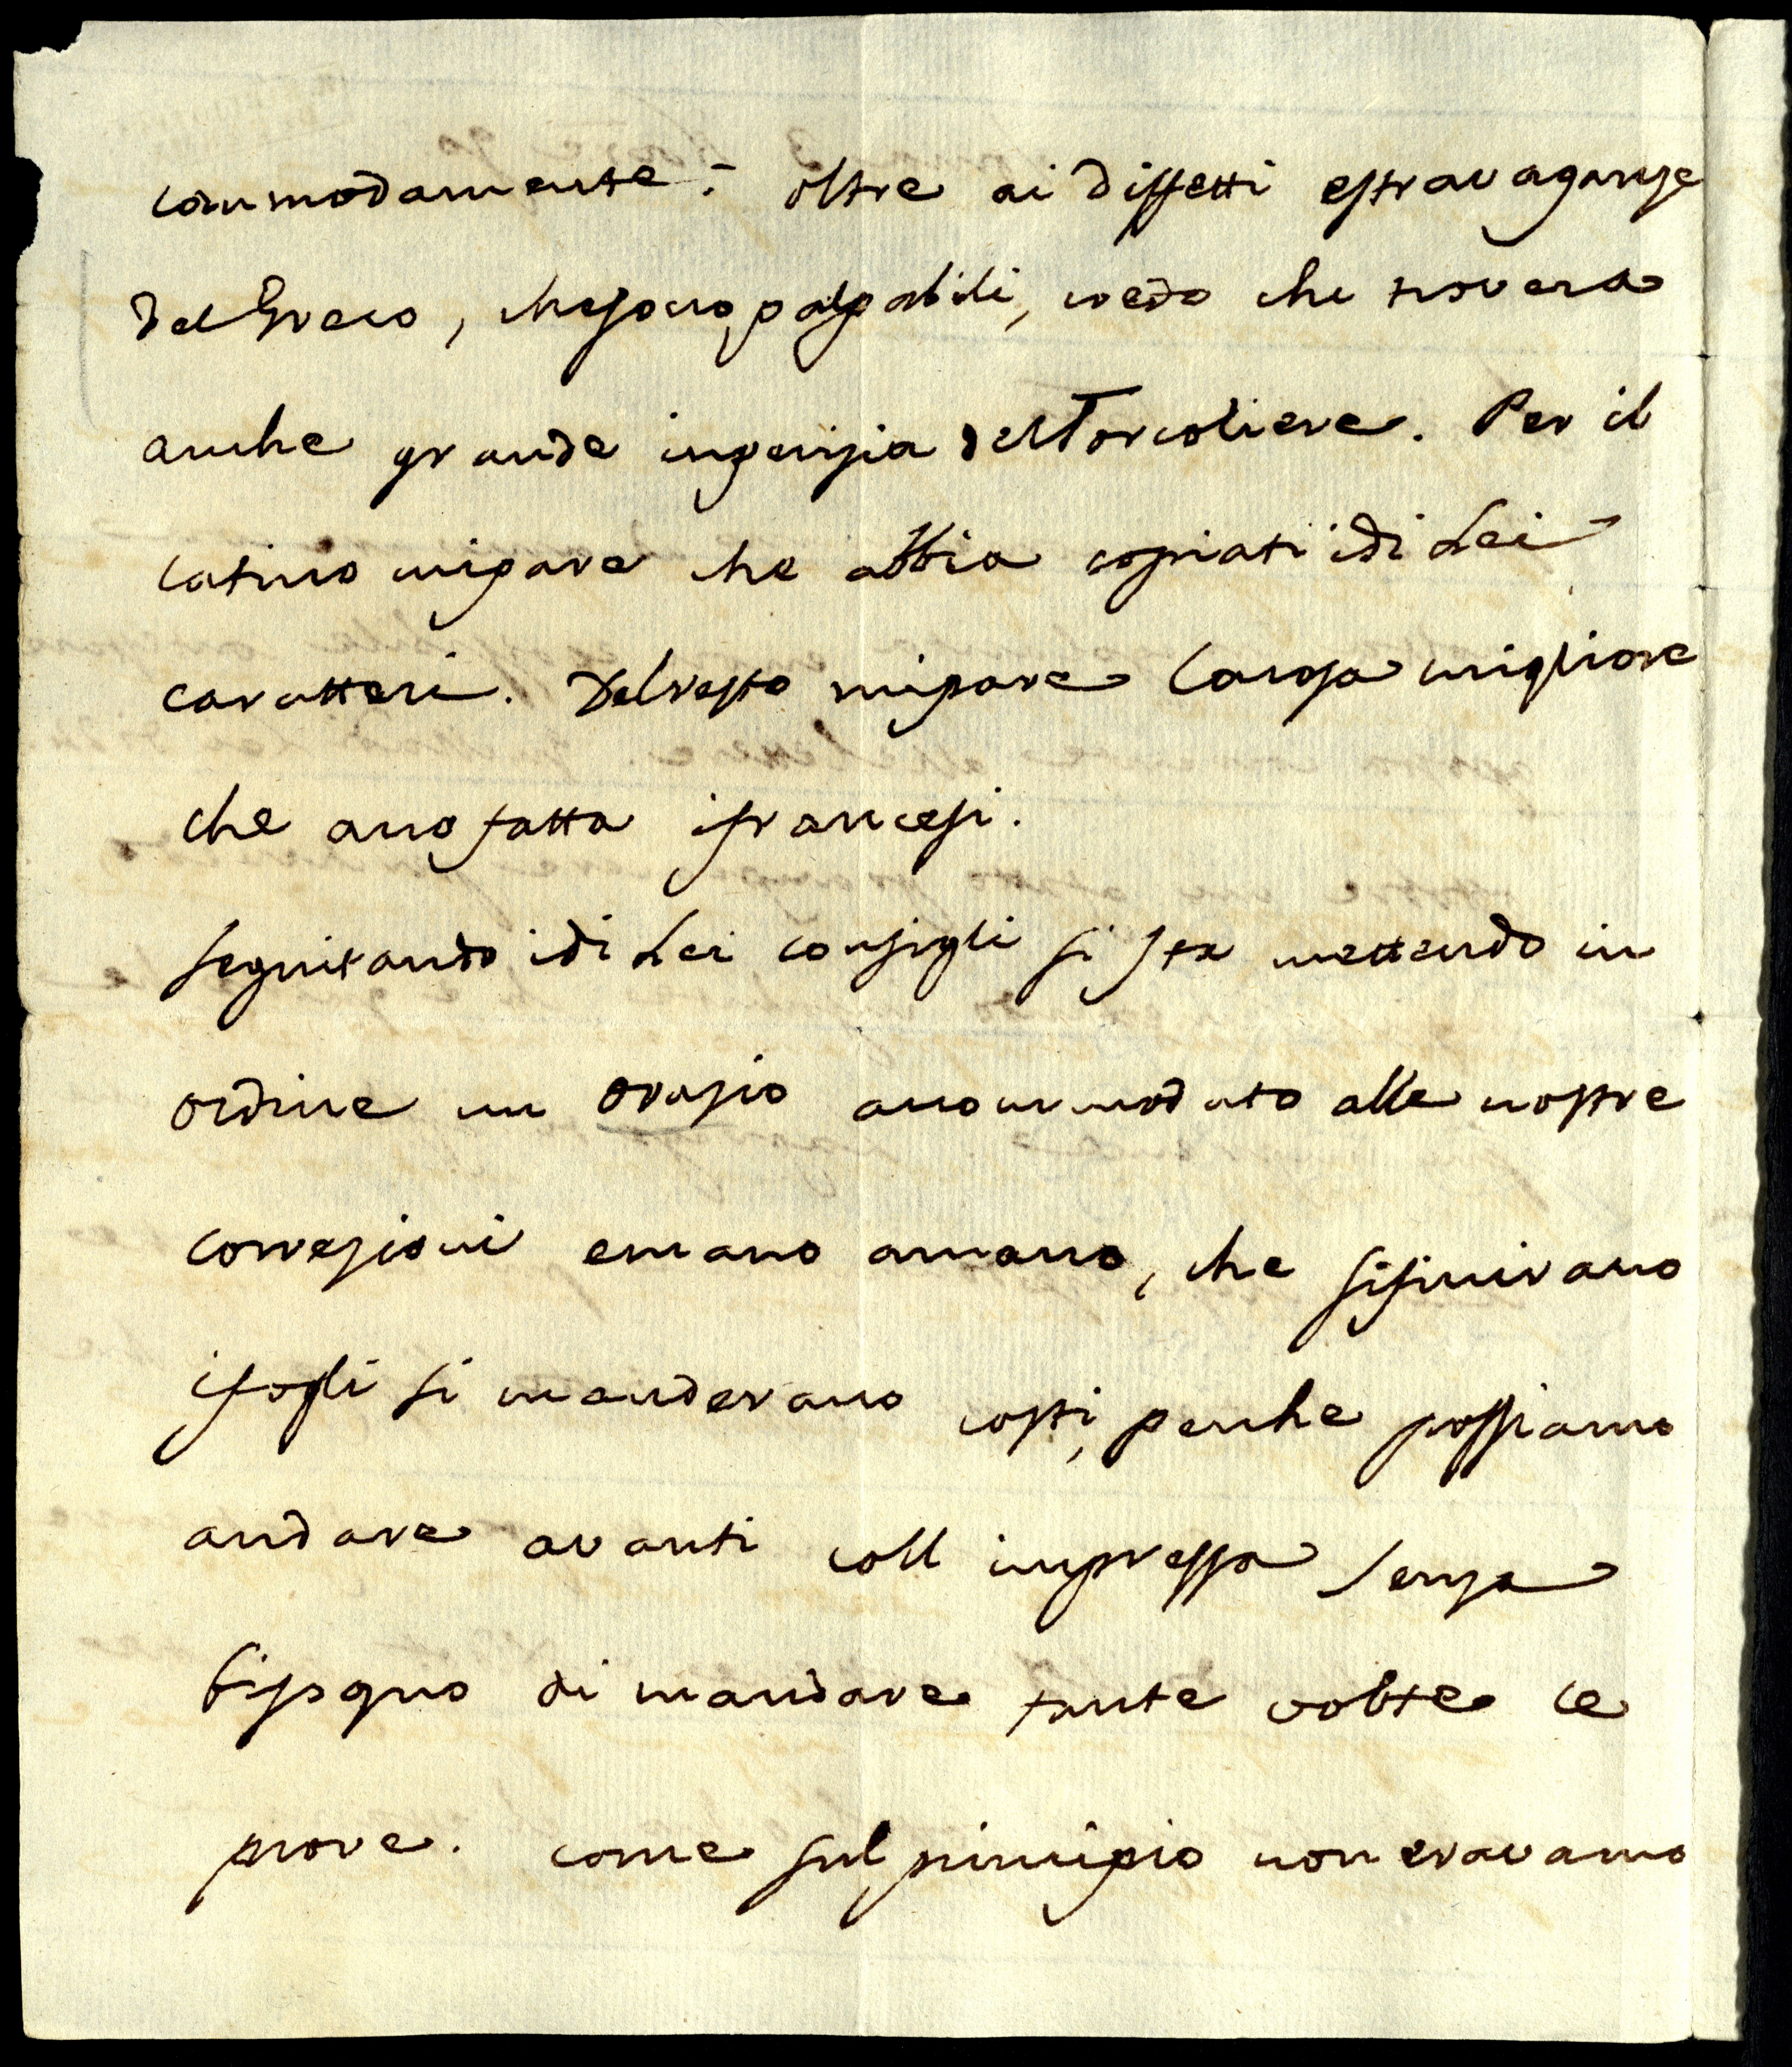 commodamente: oltre ai diffetti estravaganze
del Greco, che sono palpabili, vedo che troverà
anche grande inperizia del Torcoliere. Per il
latino mi pare che abbia copiati i di Lei
caratteri. Del resto mi pare la cosa migliore
che ano fatta i francesi.
Seguitando i di Lei consigli si sta mettendo in
ordine un Orazio accommodato alle nostre
correzioni e mano a mano, che si finirano
i fogli si manderano costi, perche possiamo
andare avanti coll impressa senza
bisogno di mandare tante volte le
prove. come sul principio non eravamo